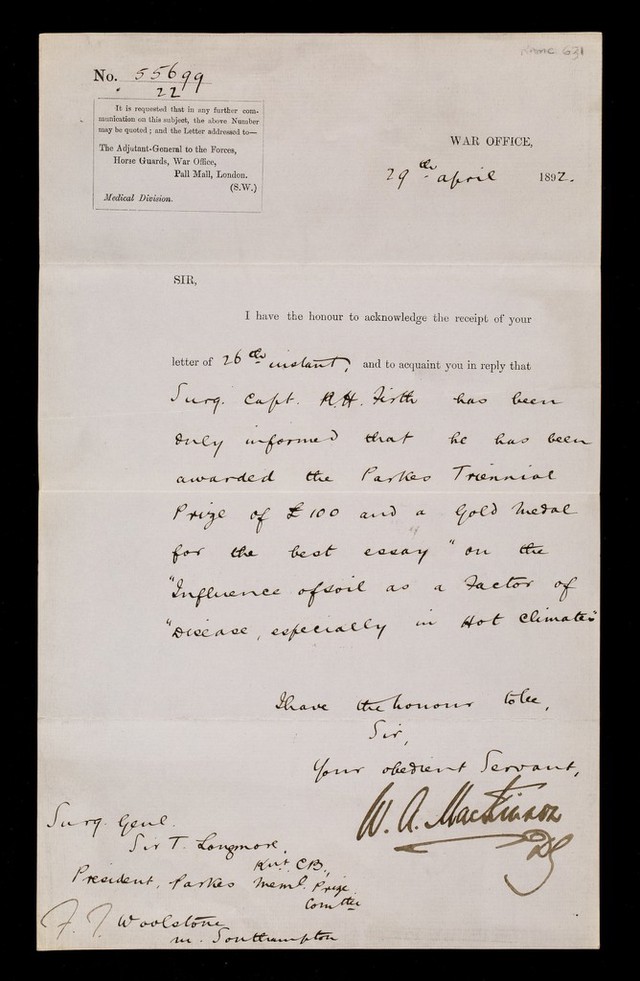 RAMC 631
No. 55699
22
It is requested that in any further com-
munication on this subject, the above Number
may be quoted; and the Letter addressed to—
The Adjutant-General to the Forces,
Horse Guards, War Office,
Pall Mall, London.
(S.W.)
Medical Division.
WAR OFFICE,
29th April 1892.
SIR,
I have the honour to acknowledge the receipt of your
letter of 26th instant, and to acquaint you in reply that
Surg. Capt. R.H. Firth has been
duly informed that he has been
awarded the Parkes Triennial
Prize of £100 and a Gold Medal
for the best essay " on the
"Influence of soil as a Factor of
"Disease, especially in Hot Climates"
I have the honour to be,
Sir,
Your obedient Servant,
W. A. Mackinnon
DG
Surg. Genl.
Sir T. Longmore,
Knt. CB,
President, Parkes Meml. Prize
Comttee
Woolstone
nr. Southampton